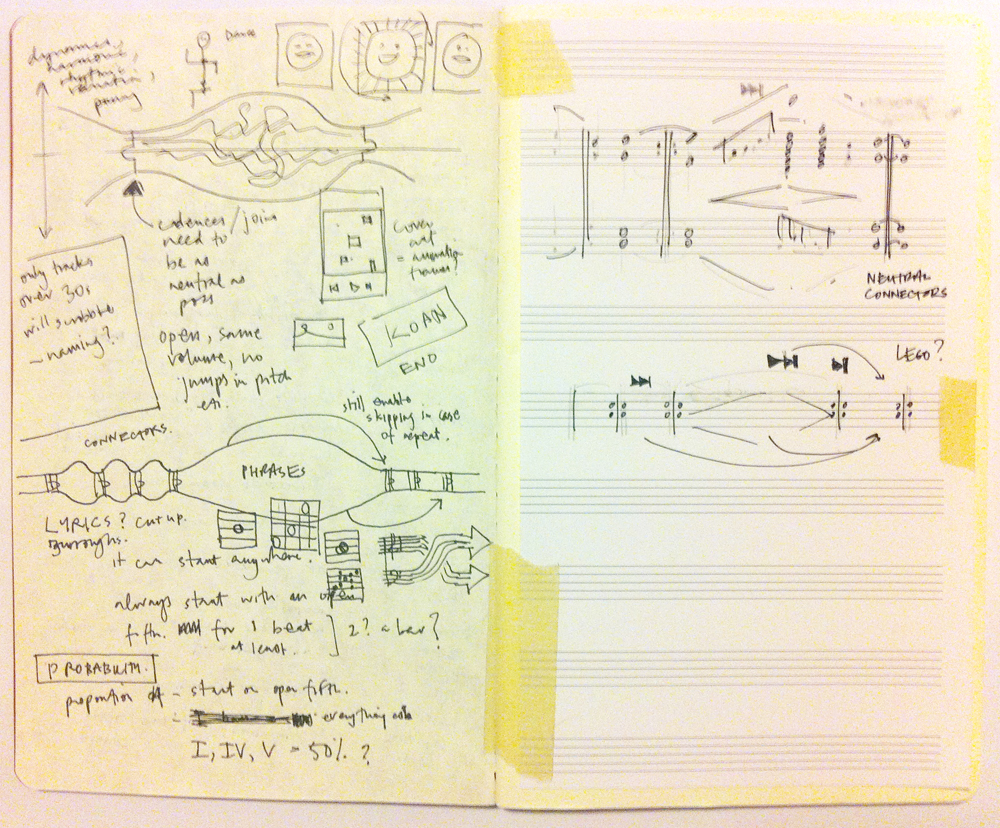 dynamics,
harmonic,
rhythmic
variation,
Dance
cadences/join
need to
be as
neutral as
poss
open, same
volume, no
jumps in pitch
etc.
only tracks
over 30s
will scrobble
– naming?
Cover
art
= animation
frames?
KOAN
END
still enable
skipping in case
of repeat.
CONNECTORS.
PHRASES
LYRICS? cut up.
Burroughs.
it can start anywhere.
always start with an open
fifth. for 1 beat
at least.
2? a bar?
PROBABILITY.
proportion of – start on open fifth.
– everything
I, IV, V = 50% ?
NEUTRAL
CONNECTORS
LEGO?